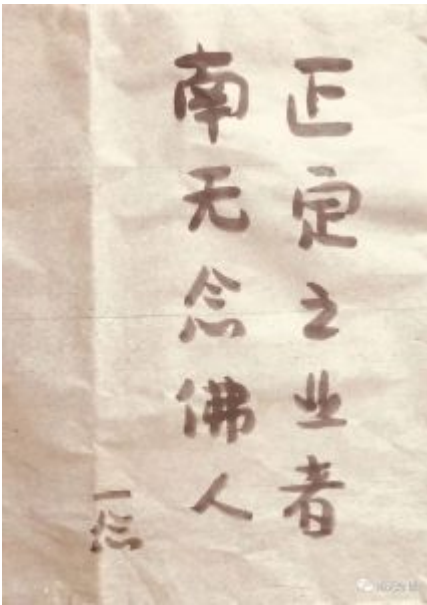 正定之业者
南无念佛人
一念